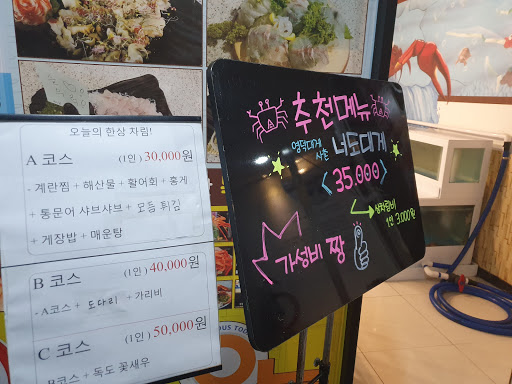 오늘의 한상 차림!
A 코스 (1인) 30,000원
- 계란찜 + 해산물 + 활어회 + 홍게
+ 통문어 샤브샤브 + 모듬 튀김
+ 게장밥 + 매운탕
B 코스 (1인) 40,000원
- A코스 + 도다리 + 가리비
C 코스 (1인) 50,000원
B코스 + 독도 꽃새우
추천메뉴
영덕대게 사촌 너도대게
<35.000>
상차림비
1인 3,000원
가성비 짱